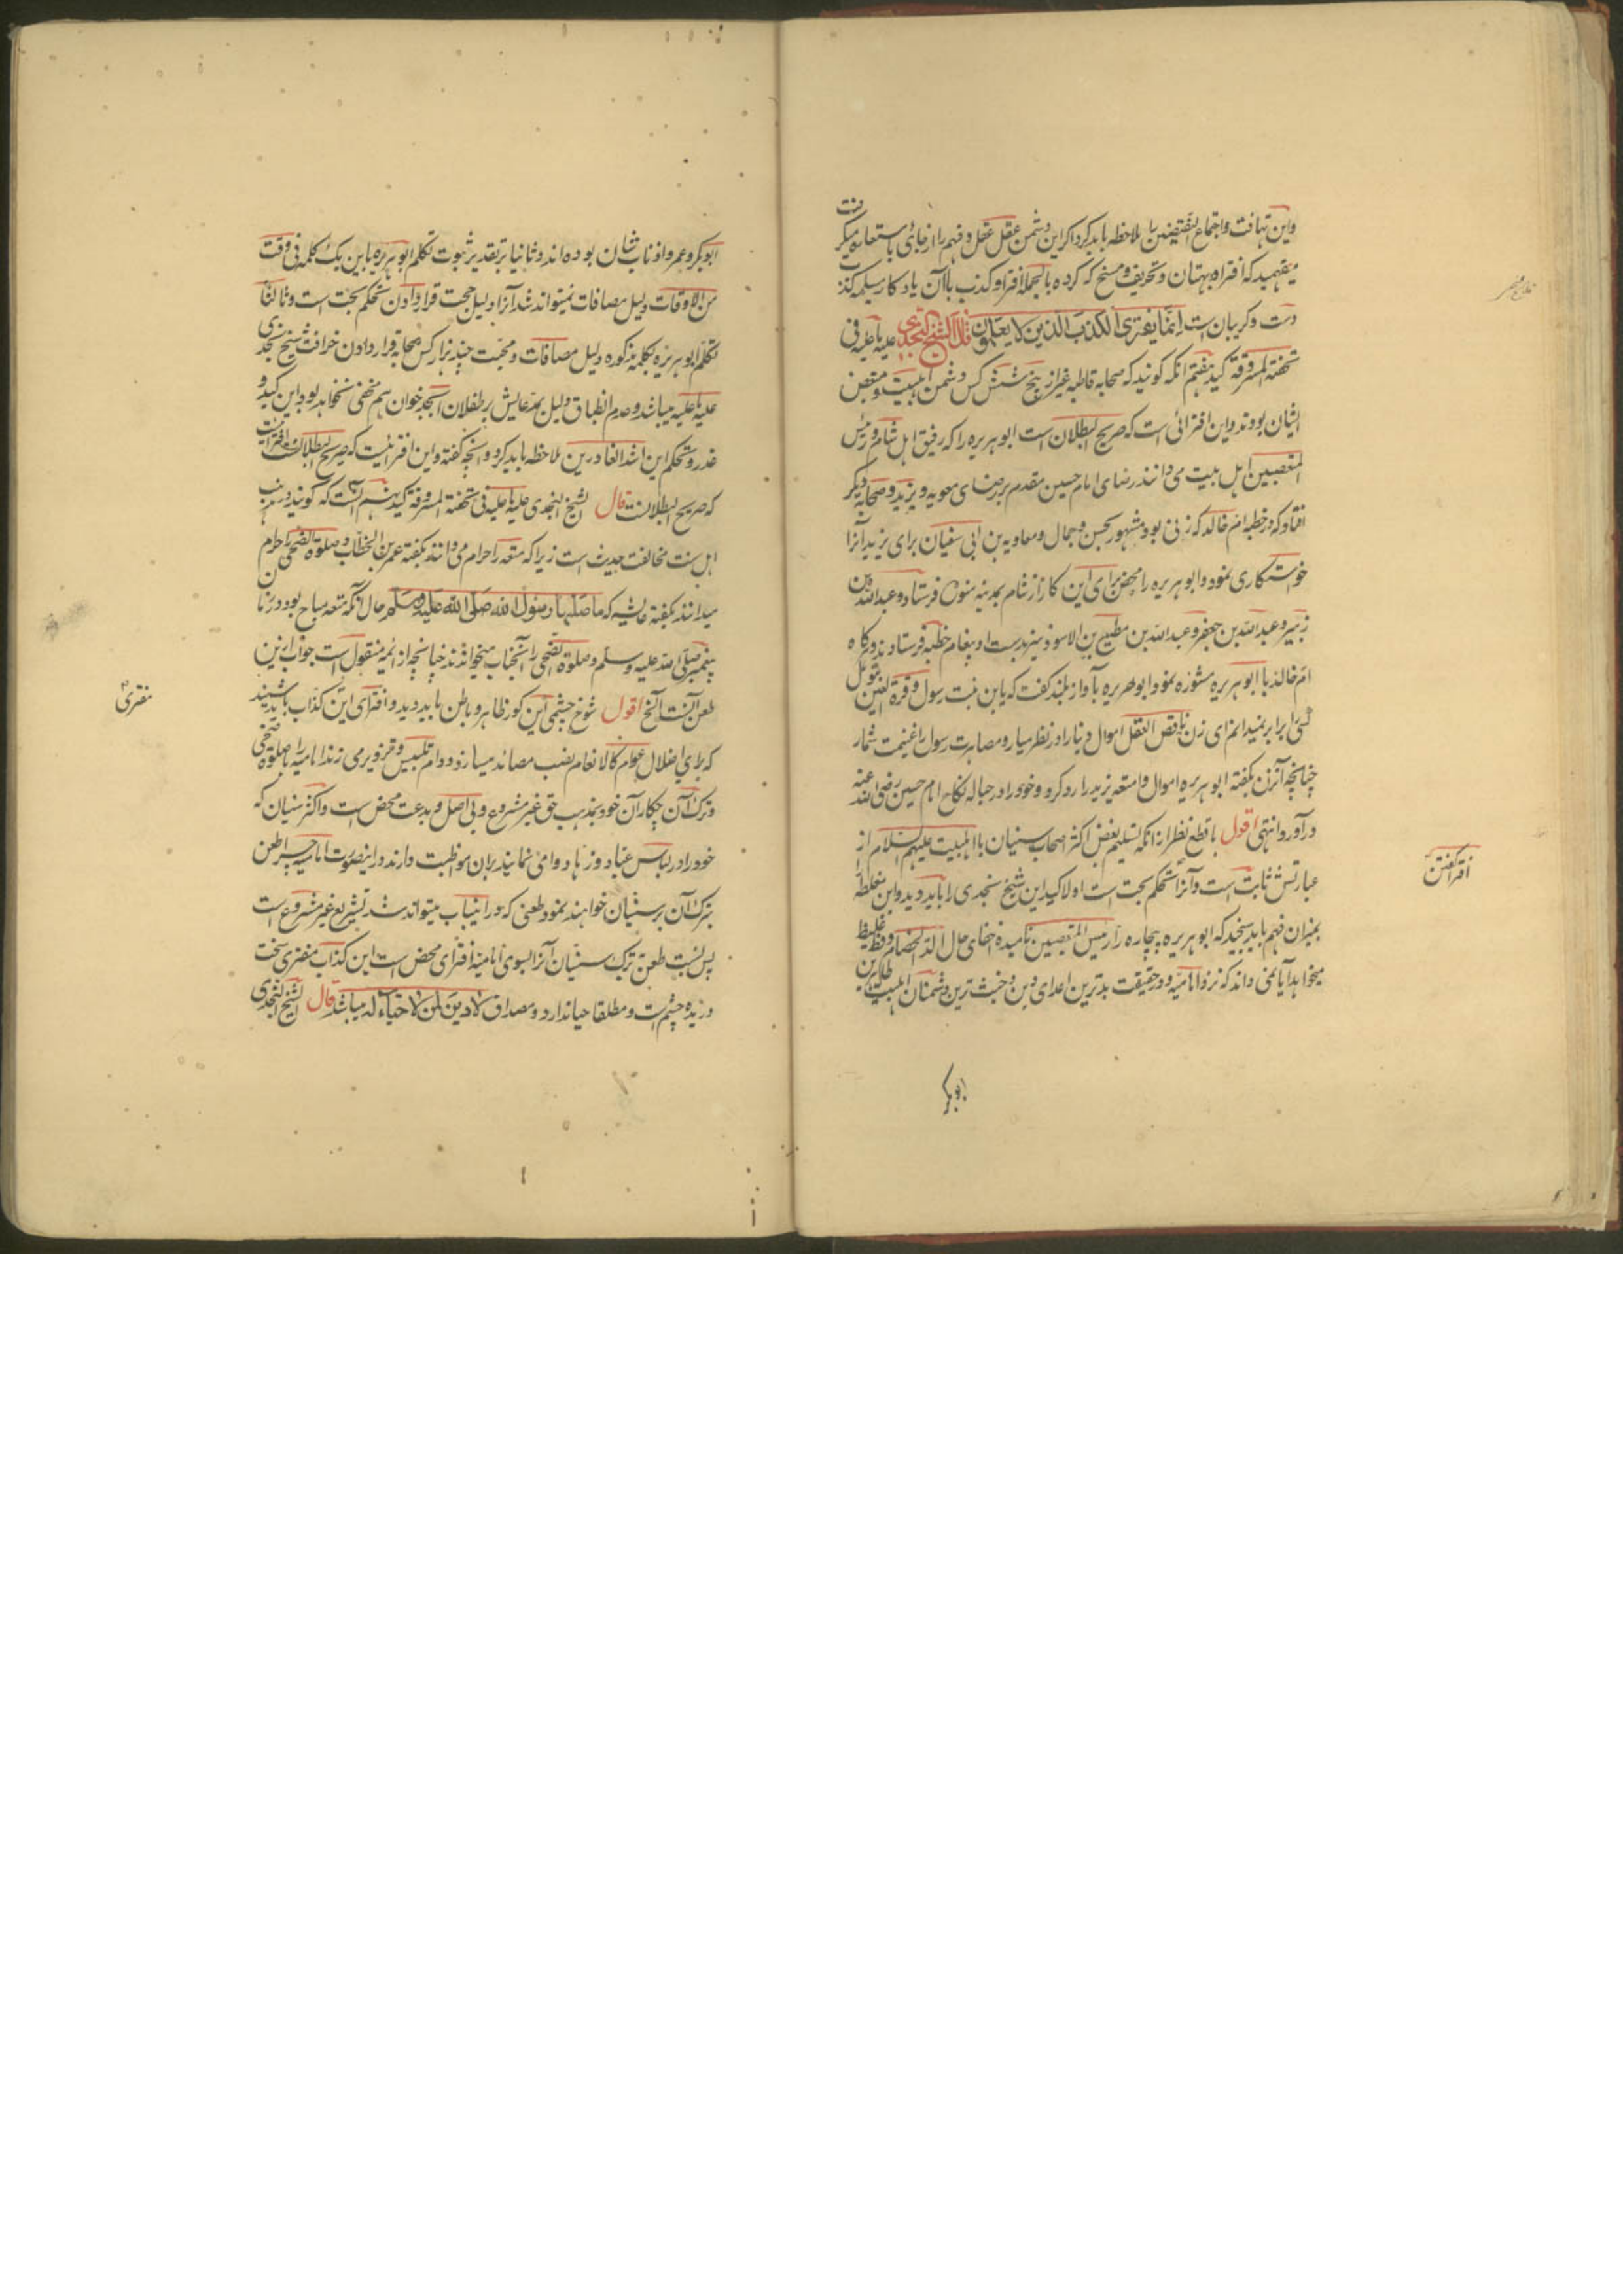 واین تهافت واجتماع النقیضین را ملاحظه باید کرد اگر این دشمن عقل عقل و فهم را از جای باستعاره میگرفت
میفهمید که افترا و بهتان و تحریف و مسخ که کرده بالجمله افترا و کذب با آن یادگار مسیلمه کذاب
دست و گریبان است اِنَّمَا یَفتَرِی الکَذِبَ الَّذِینَ لا یَعلَمُونَ قال الشیخ النجدی علیه ما علیه فی
تحفته المسروقة کید هفتم آنکه گویند که صحابه قاطبه غیر از پنج شش کس دشمن اهلبیت و مبغض
ایشان بودند و این افترائی است که صریح البطلان است ابو هریره را که رفیق اهل شام و رئیس
المتعصبین اهل بیت می دانند رضای امام حسین مقدم بر رضای معویه و یزید و صحابه دیگر
افتاد که در خطبه ام خالد که زنی بود مشهور بحسن و جمال و معاویه بن ابی سفیان برای یزید آنرا
خواستکاری نمود و ابو هریره را محض برای این کار از شام بمدینه منوره فرستاد و عبدالله بن
زبیر و عبدالله بن جعفر و عبدالله بن مطیع بن الاسود نیز بدست او پیغام خطبه فرستادند و هرگاه
ام خالد با ابو هریره مشوره نمود ابو هریره بآواز بلند گفت که یا بن بنت رسول و قرة العین بتول
کسی را برابر نمیدانم ای زن ناقص العقل اموال دنیا را در نظر میار و مصاهرت رسول را غنیمت شمار
چنانچه آنزن بگفته ابو هریره اموال و امتعه یزید را رد کرد و خود را در حباله نکاح امام حسین رضی الله عنه
در آورد انتهی اقول با قطع نظر از انکه تسلیم بغض اکثر اصحاب سنیان با اهلبیت علیهم السلام از
عبارتش ثابت است و آنرا تحکم بحت است اولا کید این شیخ نجدی را باید دید و این مغلطه را
بمیزان فهم باید سنجید که ابو هریره بیچاره را رئیس المتعصبین نامیده اخفای حال الد الخصام و فظ غلیظ
میخواهد آیا نمی داند که نزد امامیه و در حقیقت بدترین اعدای دین و خبیث ترین دشمنان اهلبیت طاهرین
ابوبکر
افترا گفتن
ابوبکر و عمر و اذناب شان بوده اند و ثانیا بر تقدیر ثبوت تکلم ابو هریره باین یک کلمه فی وقت
من الاوقات دلیل مصافات نمیتواند شد آنرا دلیل حجت قرار دادن تحکم بحت است و ثالثا
تکلم ابو هریره بکلمه مذکوره دلیل مصافات و محبت چندین هزار کس صحابه قرار دادن خرافت شیخ نجدی
علیه ما علیه میباشد و عدم انطباق دلیل بر مدعایش بر طفلان ابجد خوان هم مخفی نخواهد بود این کید و
غدر و تحکم این اشد الغادرین ملاحظه باید کرد و آنچه گفته و این افترائیست که صریح البطلانست افترائیست
که صریح البطلانست قال الشیخ النجدی علیه ما علیه فی تحفته المسروقة کید نهم آنست که گویند مذهب
اهل سنت مخالفت حدیث است زیرا که متعه را حرام می دانند بگفته عمر بن الخطاب و صلوة الضحی را حرام
میدانند بگفته عایشه که ما صلیها رسول الله صلی الله علیه وسلم حال آنکه متعه مباح بود در زمان
پیغمبر صلی الله علیه و سلم و صلوة الضحی را آنجناب میخواندند چنانچه از ائمه منقول است جواب ازین
طعن آنست الخ اقول شوخ چشمی این کور ظاهر و باطن باید دید و افترای این کذاب باید شنید
که برای اضلال عوام کالانعام نصب مصائد میسازد و دام تلبیس و تزویر می زند امامیه را با صلوة ضحی
و ترک آن چکار آن خود بمذهب حق غیر مشروع و بی اصل و بدعت محض است و اکثر سنیان که
خود را در لباس عباد و زهاد وامی نمایند بران مواظبت دارند درینصورت امامیه چرا طعن
بترک آن بر سنیان خواهند نمود طعنی که در اینباب میتواند شد تشریع غیر مشروع است
پس نسبت طعن ترک سنیان آنرا بسوی امامیه افترای محض است این کذاب مفتری سخت
دریده چشم است و مطلقا حیا ندارد و مصداق لا دین لمن لا حیاء له میباشد قال الشیخ النجدی
مفتری